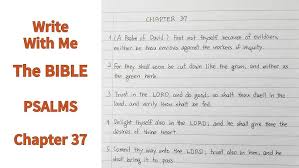 Write
With Me
The BIBLE
PSALMS
Chapter 37
CHAPTER 37
1 (A Psalm of David) Fret not thyself because of evildoers,
neither be thou envious against the workers of iniquity.
2 For they shall soon be cut down like the grass, and wither as
the green herb.
3 Trust in the LORD, and do good; so shalt thou dwell in the
land, and verily thou shalt be fed.
4 Delight thyself also in the LORD; and he shall give thee the
desires of thine heart.
5 Commit thy way unto the LORD; trust also in him; and he
shall bring it to pass.